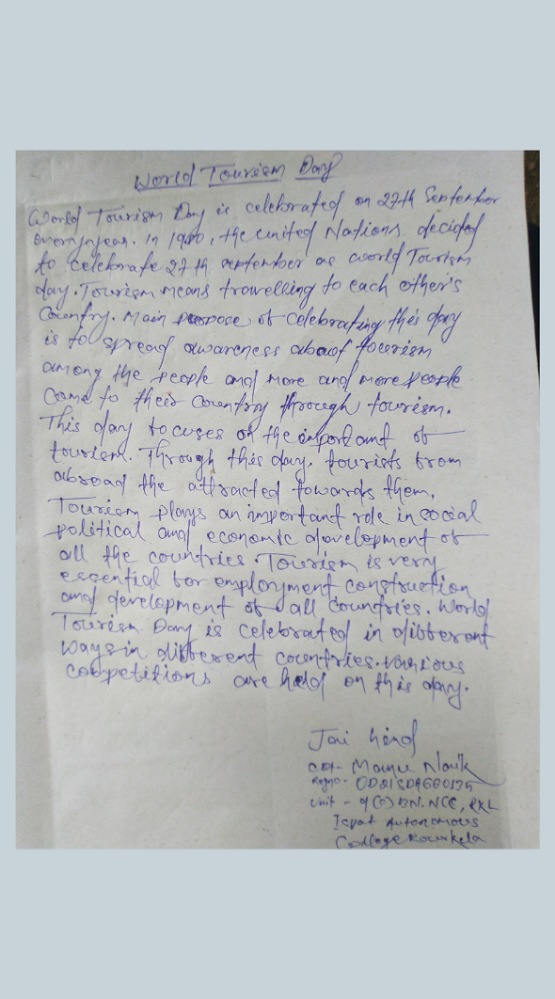 World Tourism Day
World Tourism Day is celebrated on 27th September
everyyear. In 1980, the united Nations decided
to celebrate 27th september as world Tourism
day. Tourism means travelling to each other's
Country. Main purpose of celebrating this day
is to spread awareness about tourism
among the people and more and more people
Came to their Country through tourism.
This day focuses of the important of
tourism. Through this day. tourists from
abroad the attracted towards them.
Tourism plays an important role in social
political and economic development of
all the countries. Tourism is very
essential for employment construction
and development of all Countries. World
Tourism Day is celebrated in different
ways in different countries. various
cobpetitions are held on this day.
Jai hind
Cdt- Manu Naik
Regno-
unit - 9(O) BN. NCC, RKL
Ispat Autonomous
College Rourkela